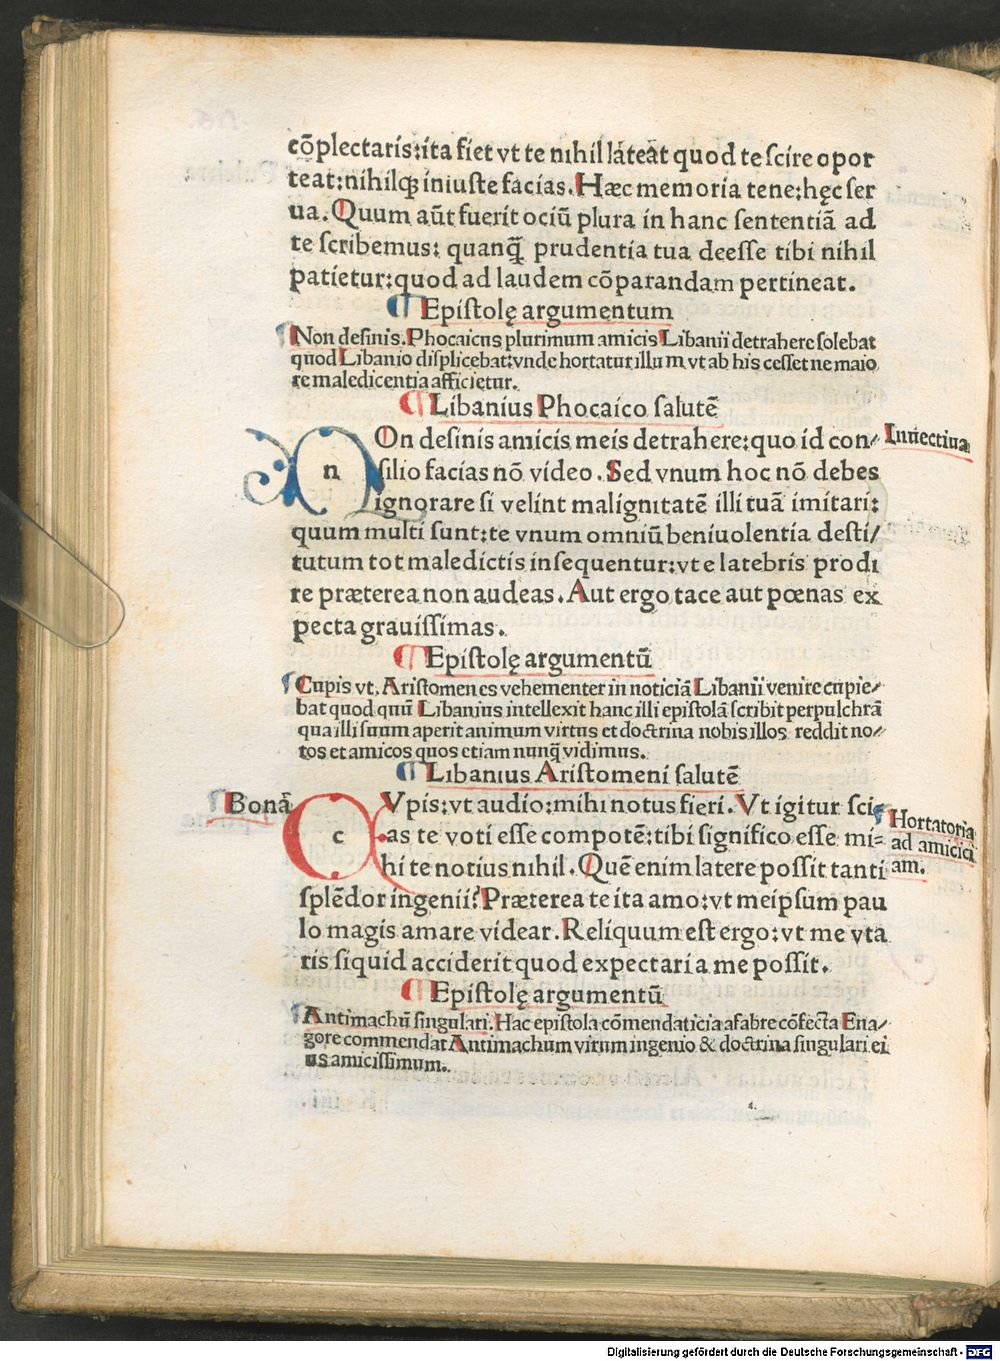 cõplectaris:ita fiet vt te nihil lateat quod te scire opor
teat:nihilqȝ iniuste facias. Hæc memoria tene:hęc ser
ua. Quum aũt fuerit ociũ plura in hanc sententiã ad
te scribemus: quanq̃ prudentia tua deesse tibi nihil
patietur:quod ad laudem cõparandam pertineat.
¶ Epistolę argumentum
¶ Non desinis. Phocaicus plurimum amicis Libanii detrahere solebat
quod Libanio displicebat:vnde hortatur illum vt ab his cesset ne maio
re maledicentia afficietur.
¶ Libanius Phocaico salutẽ
nOn desinis amicis meis detrahere:quo id con⸗
silio facias nõ video. Sed vnum hoc nõ debes
ignorare si velint malignitatẽ illi tuã imitari:
quum multi sunt:te vnum omniũ beniuolentia desti⸗
tutum tot maledictis insequentur:vt e latebris prodi
re præterea non audeas. Aut ergo tace aut pœnas ex
pecta grauissimas.
Inuectiua
¶ Epistolę argumentũ
¶ Cupis vt. Aristomenes vehementer in noticiã Libanii venire cupie⸗
bat quod quũ Libanius intellexit hanc illi epistolã scribit perpulchrã
qua illi suum aperit animum virtus et doctrina nobis illos reddit no⸗
tos et amicos quos etiam nunq̃ vidimus.
¶ Libanius Aristomeni salutẽ
¶ Bonã
cVpis:vt audio:mihi notus fieri. Vt igitur sci⸗
as te voti esse compotẽ:tibi significo esse mi⸗
hi te notius nihil. Quẽ enim latere possit tanti
splẽdor ingenii? Præterea te ita amo:vt meipsum pau
lo magis amare videar. Reliquum est ergo:vt me vta
ris siquid acciderit quod expectari a me possit.
¶ Hortatoria
ad amicici
am.
¶ Epistolę argumentũ
¶ Antimachũ singulari. Hac epistola cõmendaticia afabre cõfecta Ena⸗
gore commendat Antimachum virum ingenio & doctrina singulari ei
us amicissimum.
Digitalisierung gefördert durch die Deutsche Forschungsgemeinschaft - DFG